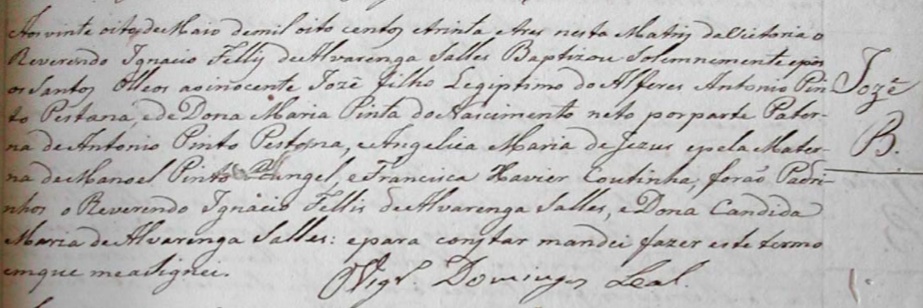 Aos vinte oito de Maio de mil oito centos e trinta e tres nesta Matriz da Victoria o
Reverendo Ignacio Felliz de Alvarenga Salles Baptizou Solemnemente e pos
os Santos Olleos ao inocente Jozé filho Legiptimo do Alferes Antonio Pin-
to Pestana, e de Dona Maria Pinta do Nascimento neto por parte Pater-
na de Antonio Pinto Pestana, e Angelica Maria de Jezus e pela Mater-
na de Manoel Pinto Rangel, e Francisca Xavier Coutinha, forão Padri-
nhos o Reverendo Ignácio Fellis de Alvarenga Salles, e Dona Candida
Maria de Alvarenga Salles: e para constar mandei fazer este termo
em que me asignei.
O Vigr.º Domingos Leal.
Jozé
B.